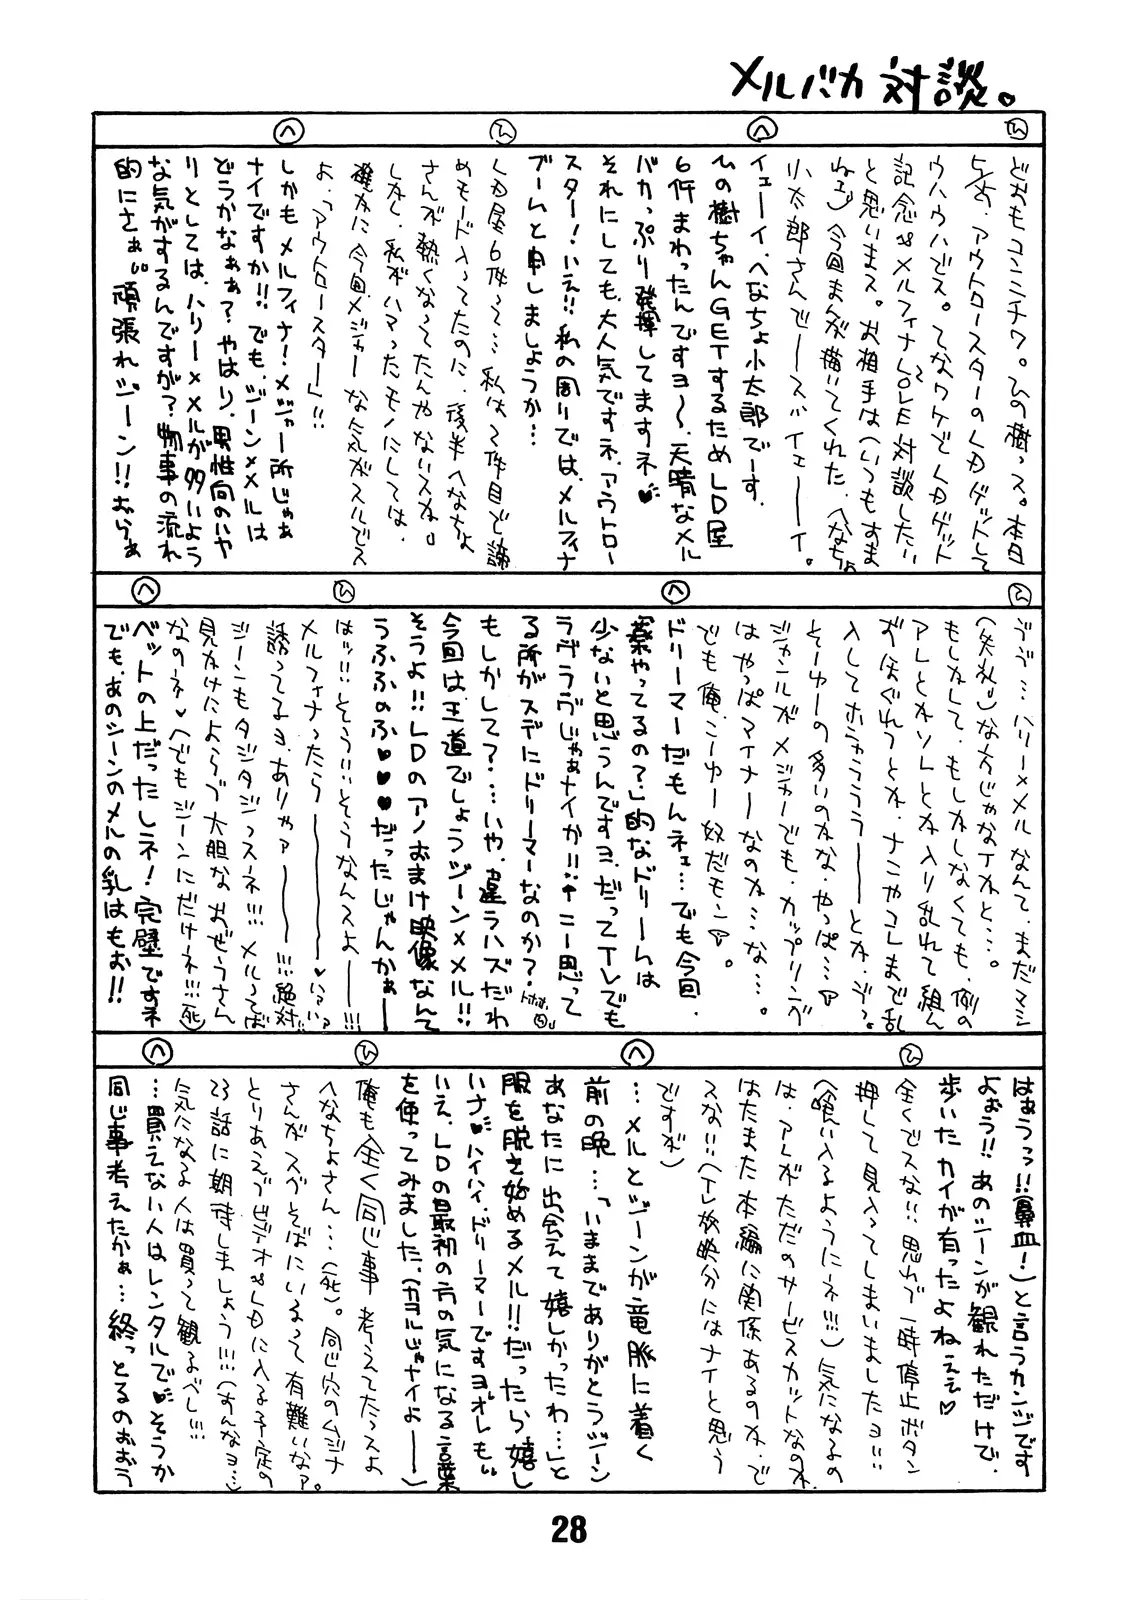 メルバカ対談。
ひ
どおもコンニチワ。ひの樹っス。本日
5/25.アウトロースターのLDゲットして
ウハウハでス。てなワケでLDゲット
記念♂メルフィナLOVE対談したい
と思いまス。お相手は(いつもすま
ねェ)今回まんが描いてくれた、へなちょ
小太郎さんでーースバイェーーイ。
へ
イェーイ、へなちょ小太郎でーす。
ひの樹ちゃんGETするためLD屋
6件まわったんですヨ〜、天晴なメル
バカっぷり発揮してますネ♥
それにしても、大人気ですネ、アウトロー
スター!いえ!!私の周りでは、メルフィナ
ブームと申しましょうか…
ひ
LD屋6件って…私は2件目で諦
めモード入ってたのに、後半へなちょ
さんが熱くなってたんやないスね。
しかし、私がハマったモノにしては、
確かに今回メジャーな気がスルでス
よ、「アウトロースター」!!
へ
しかもメルフィナ!メジャー所じゃぁ
ナイですか!!でも、ジーン×メルは
どうかなぁぁ?やはり、男性向のハヤ
リとしては、ハリー×メルが多いよう
な気がするんですが?物事の流れ
的にさぁ!!頑張れジーン!!おらぁ
ひ
うう…ハリー×メルなんて、まだマシ
(失礼)な方じゃないかと…。
もしかして、もしかしなくても、例の
アレとかソレとか入り乱れて組ん
ずほぐれつとか、ナニやコレまで乱
入してホニャララーーとか、ジっ。
そーゆーの多いのかな、やっぱ…
ジャンルがメジャーでも、カップリング
はやっぱマイナーなのか…な…。
でも俺、こーゆー奴だモン
へ
ドリーマーだもんネェ…でも今回、
「薬やってるの?」的なドリームは
少ないと思うんですヨ、だってTVでも
ラヴラヴじゃぁナイか!!←こー思って
る所がスデにドリーマーなのか?
もしかして?…いや、違うハズだわ
今回は王道でしょうジーン×メル!!
そうよ!!LDのアノおまけ映像なんて
うふふのふ♥♥♥だったじゃんかぁー
ひ
はッ!!そう!!そうなんスよーー!!!
メルフィナったらーーー♥いいい?
誘ってるヨ、ありゃァーー!!!絶対!!
ジーンもタジタジっスネ!!!メルってば
見かけによらづ大胆なおぜうさん
なのネ♥(でもジーンにだけネ!!!死)
へ
ベットの上だったしネ!完璧ですネ
でも、あのシーンのメルの乳はもお!!
はぁうっっ!!(鼻血!)と言うカンジです
よぉう!!あのシーンが観れただけで、
歩いたカイが有ったよねぇぇ♡
ひ
全くでスな!!思わづ一時停止ボタン
押して見入ってしまいましたヨ!!
(喰い入るようにネ!!!)気になるの
は、アレがただのサービスカットなのか、
はたまた本編に関係あるのか、で
スな!!(TV放映分にはナイと思う
ですが)
へ
…メルとジーンが竜脈に着く
前の晩…「いままでありがとうジーン
あなたに出会えて嬉しかったわ…」と
服を脱ぎ始めるメル!!だったら嬉し
いナ♥ハイハイ、ドリーマーですヨオレも!!
いえ、LDの最初の方の気になる言葉
を使ってみました。(カヨルじゃナイよー)
ひ
俺も全く同じ事考えてたっスよ
へなちょさん…(死)。同じ穴のムジナ
さんがスグそばにいるって有難いなァ。
とりあえづビデオ♂LDに入る予定の
23話に期待しましょう!!!(すんなヨ…)
気になる人は買って観るべし!!!
へ
…買えない人はレンタルで♥そうか
同じ事考えたかぁ…終っとるのおおう
28